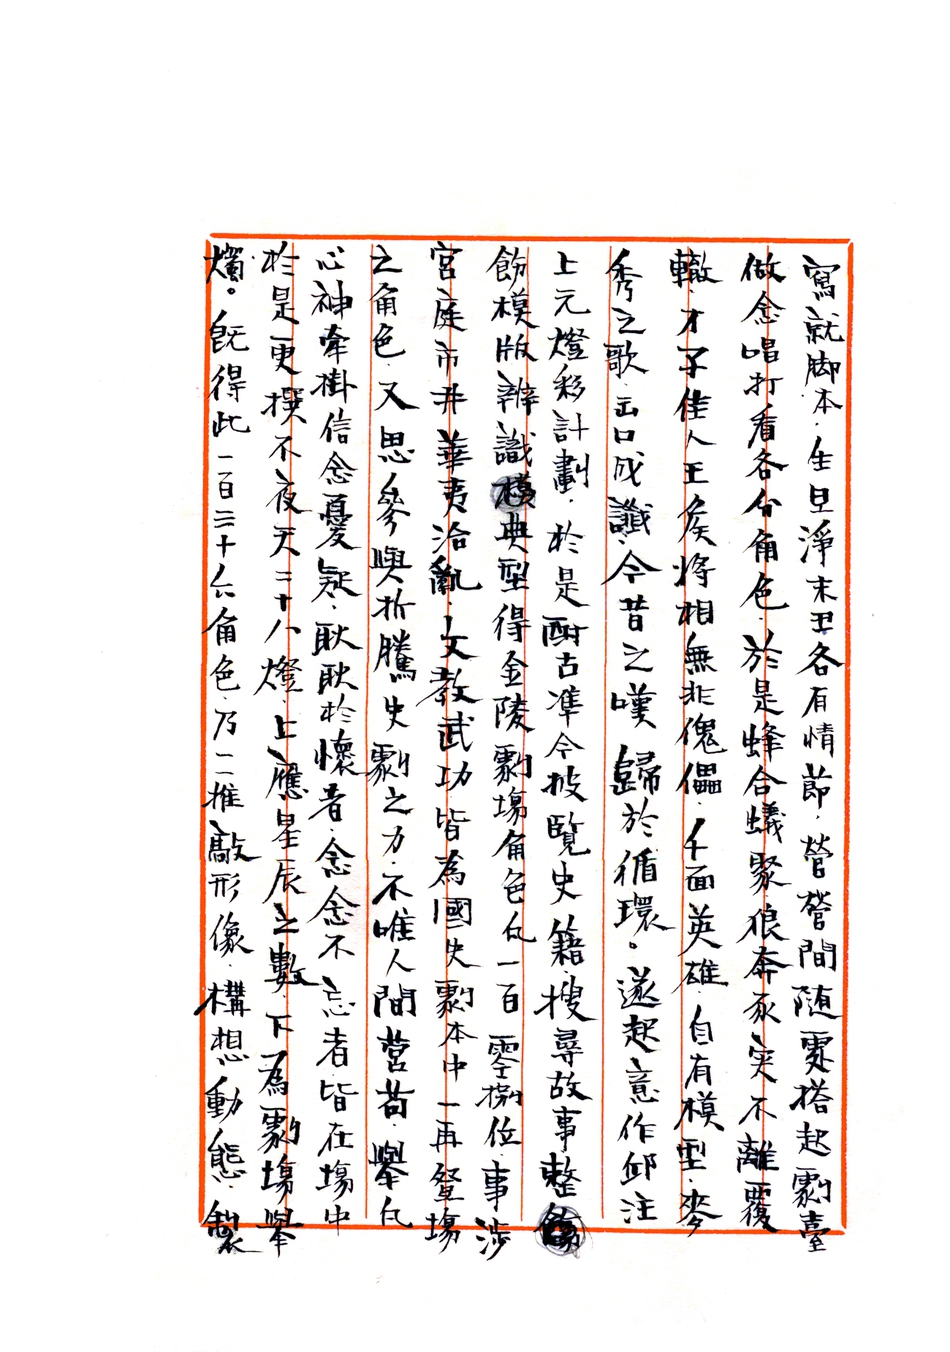 寫就脚本．生旦淨末丑各有情節．營營間随處搭起劇臺
做念唱打看各份角色．於是蜂合蟻聚狼奔豕突不離覆
轍．才子佳人王侯將相無非傀儡．千面英雄．自有模型．麥
秀之歌．出口成讖．今昔之嘆歸於循環。遂起意作邱注
上元燈彩計劃．於是酎古準今披覧史籍．搜尋故事整
飭模版辨識典型得金陵劇場角色凡一百零捌位．事涉
宮庭市井華夷治亂．文教武功皆為國史劇本中一再登場
之角色．又思參與折騰史劇之力．不唯人間營苟．舉凡
心神牽掛信念憂疑．耿耿於懷者．念念不忘者．皆在場中
於是更撰不夜天二十八燈．上應星辰之數．下為劇場舉
燭。既得此一百三十六角色．乃一一推敲形像．構想動態．製